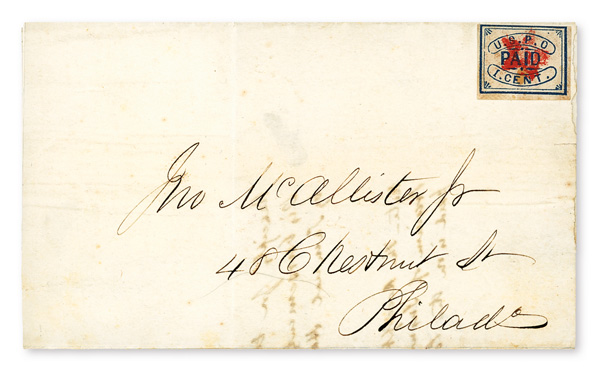 U.S.P.O
PAID
1.CENT.
Jno McAllister Jr
48 Chestnut St
Philada